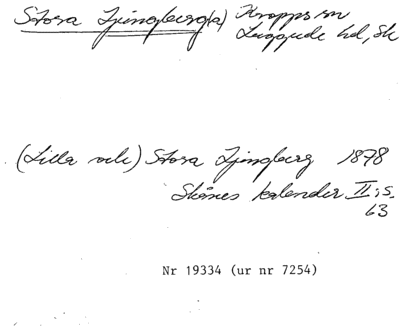 Stora Ljungberg(a) Kropps sn
Luggude hd, Sk
(Lilla och) Stora Ljungberg 1878
Skånes kalender II:s.
63
Nr 19334 (ur nr 7254)